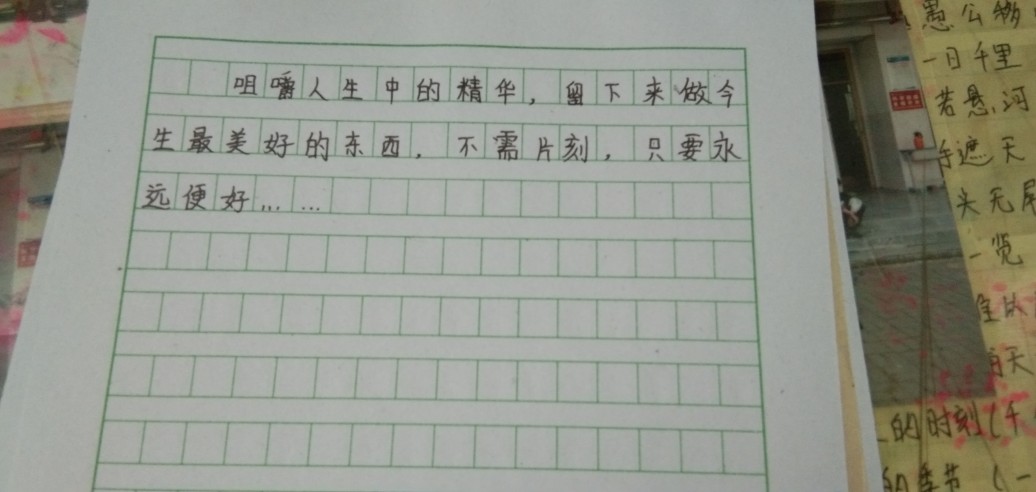 咀嚼人生中的精华，留下来做今
生最美好的东西，不需片刻，只要永
远便好……
愚公
一日千里
若悬河
手遮天
头无尾
一览
天
的时刻（千
的季节（一